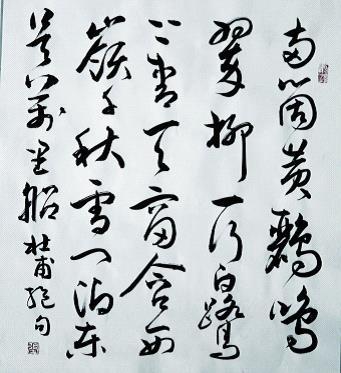 兩箇黄鸝鳴
翠柳一行白鷺
上青天窗含西
嶺千秋雪門泊東
吳萬里船 杜甫絕句